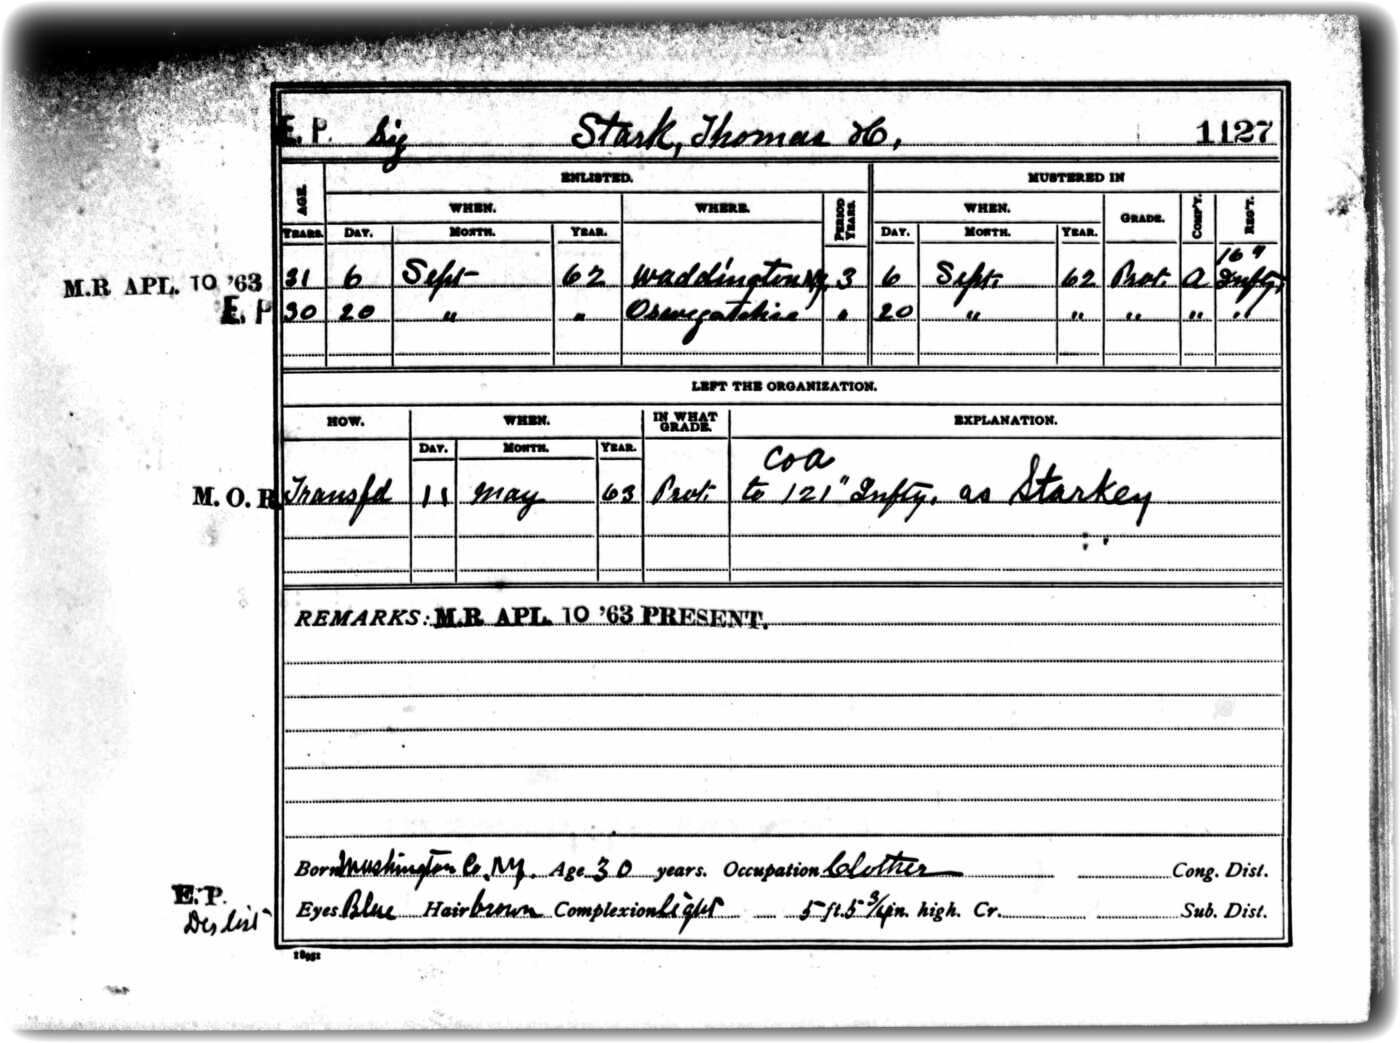 E. P. Sig Stark, Thomas H. 1127
ENLISTED. MUSTERED IN
AGE. WHEN. WHERE. PERIOD YEARS. WHEN. GRADE. COMP'Y. REG'T.
YEARS. DAY. MONTH. YEAR. DAY. MONTH. YEAR.
M.R APL. 10 '63 31 6 Sept 62 Waddington NY. 3 6 Sept. 62 Pvt. A 16" Infty.
E. P 30 20 " " Oswegatchie " 20 " " " " "
LEFT THE ORGANIZATION.
HOW. WHEN. IN WHAT GRADE. EXPLANATION.
DAY. MONTH. YEAR.
Co A
M. O. R. Transfd 11 May 63 Pvt. to 121" Infty. as Starkey
" "
REMARKS: M.R APL. 10 '63 PRESENT.
Born Washington Co. N.Y. Age 30 years. Occupation Clothier Cong. Dist.
E. P.
Des list Eyes Blue Hair brown Complexion light 5 ft. 5 3/4 in. high. Cr. Sub. Dist.
18951